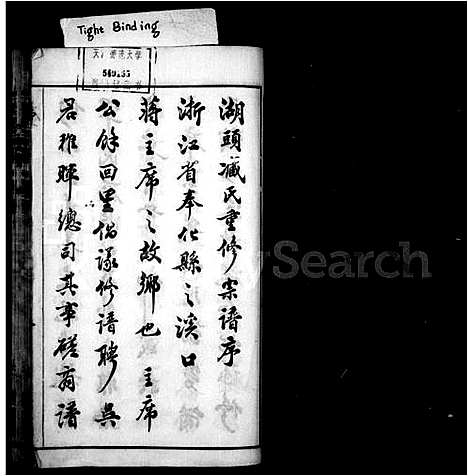 Tight Binding
湖頭臧氏重修宗譜序
浙江省奉化縣之溪口
蔣主席之故鄉也 主席
公餘回里倡議修譜聘 吳
君稚暉總司其事磋商譜
MySearch